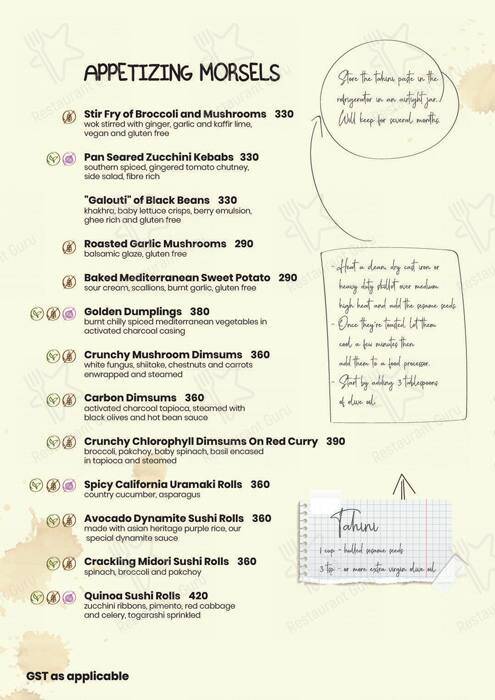 APPETIZING MORSELS
Stir Fry of Broccoli and Mushrooms 330
wok stirred with ginger, garlic and kaffir lime,
vegan and gluten free
Pan Seared Zucchini Kebabs 330
southern spiced, gingered tomato chutney,
side salad, fibre rich
"Galouti" of Black Beans 330
khakhra, baby lettuce crisps, berry emulsion,
ghee rich and gluten free
Roasted Garlic Mushrooms 290
balsamic glaze, gluten free
Baked Mediterranean Sweet Potato 290
sour cream, scallions, burnt garlic, gluten free
Golden Dumplings 380
burnt chilly spiced mediterranean vegetables in
activated charcoal casing
Crunchy Mushroom Dimsums 360
white fungus, shiitake, chestnuts and carrots
enwrapped and steamed
Carbon Dimsums 360
activated charcoal tapioca, steamed with
black olives and hot bean sauce
Crunchy Chlorophyll Dimsums On Red Curry 390
broccoli, pakchoy, baby spinach, basil encased
in tapioca and steamed
Spicy California Uramaki Rolls 360
country cucumber, asparagus
Avocado Dynamite Sushi Rolls 360
made with asian heritage purple rice, our
special dynamite sauce
Crackling Midori Sushi Rolls 360
spinach, broccoli and pakchoy
Quinoa Sushi Rolls 420
zucchini ribbons, pimento, red cabbage
and celery, togarashi sprinkled
GST as applicable
Store the tahini paste in the
refrigerator in an airtight jar.
Will keep for several months.
- Heat a clean, dry cast iron or
heavy duty skillet over medium
high heat and add the sesame seeds.
- Once they're toasted, let them
cool a few minutes then
add them to a food processor.
- Start by adding 3 tablespoons
of olive oil.
Tahini
1 cup - hulled sesame seeds
3 tsp - or more extra virgin olive oil
Restaurant Guru